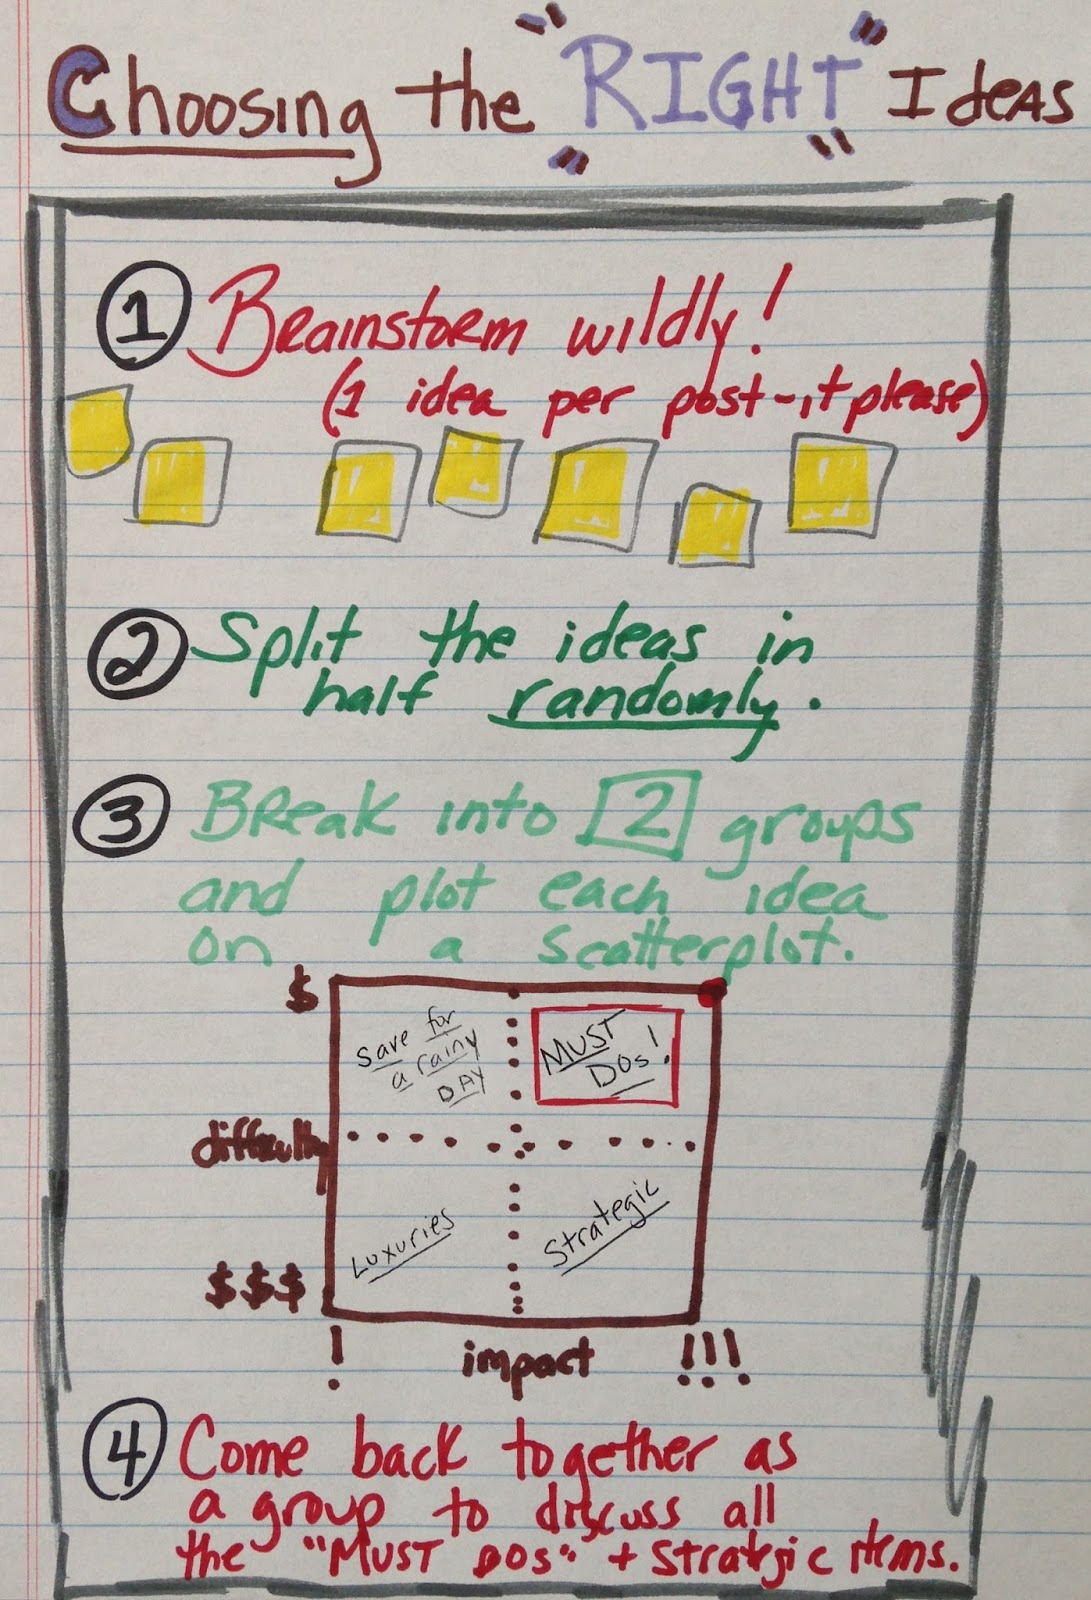 Choosing the "RIGHT" Ideas
1 Brainstorm wildly!
(1 idea per post-it please)
2 Split the ideas in
half randomly.
3 Break into 2 groups
and plot each idea
on a scatterplot.
$
save for
a rainy
DAY
MUST
DOs!
difficulty
Luxuries
Strategic
$$$
! impact !!!
4 Come back together as
a group to discuss all
the "MUST DOS" + Strategic items.